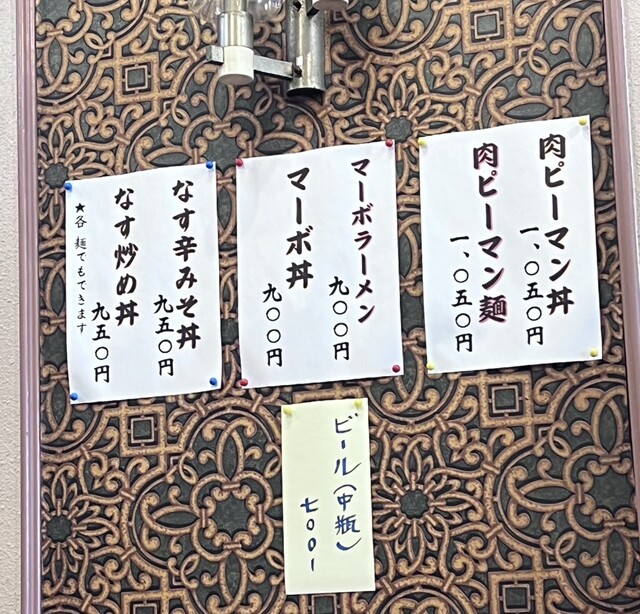 肉ピーマン丼
一、〇五〇円
肉ピーマン麺
一、〇五〇円
マーボラーメン
九〇〇円
マーボ丼
九〇〇円
なす辛みそ丼
九五〇円
なす炒め丼
九五〇円
★各 麺でもできます
ビール(中瓶)
七〇〇ー